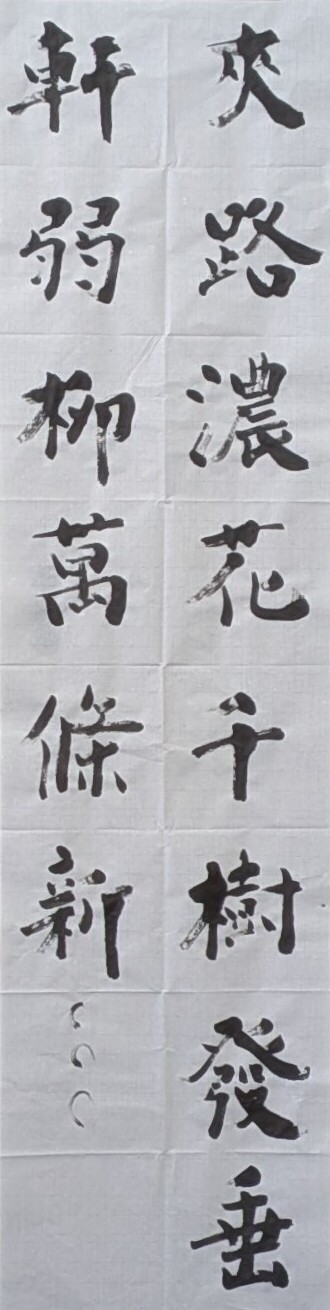 夾路濃花千樹發垂
軒弱柳萬條新